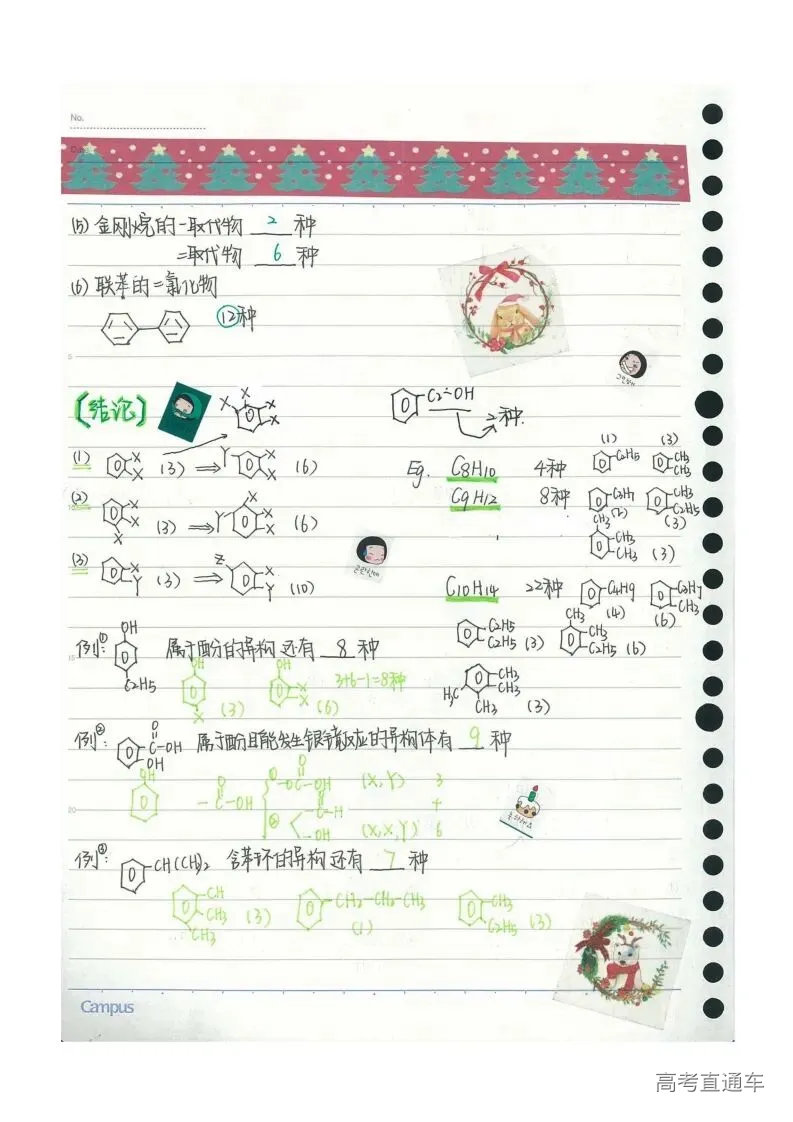 No.
Date
(5) 金刚烷的一取代物 2 种
二取代物 6 种
(6) 联苯的二氯化物
12种
[结论]
X X X X
C2-OH
2种.
(1) X X (3) ⟹ Y X X (6)
Eg. C8H10 4种 (1) C2H5 (3) CH3 CH3
(2) X X X (3) ⟹ Y X X X (6)
C9H12 8种 C3H7 (2) CH3 C2H5 (3)
CH3 CH3 CH3 (3)
(3) X Y (3) ⟹ Z X Y (10)
C10H14 22种 C4H9 (4) C3H7 CH3 (6)
C2H5 C2H5 (3) CH3 CH3 C2H5 (6)
H3C CH3 CH3 CH3 (3)
例①: OH C2H5 属于酚的异构还有 8 种
OH X (3) OH X X (6) 3+6-1=8种
例②: O C-OH OH 属于酚且能发生银镜反应的异构体有 9 种
OH O -C-OH ① O -O-C-H (X,Y) 3
+
② O C-H -OH (X,X,Y) 6
例③: CH(CH)2 含苯环的异构还有 7 种
CH CH3 CH3 (3) CH2-CH2-CH3 (1) CH3 C2H5 (3)
5
10
15
20
Campus
高考直通车